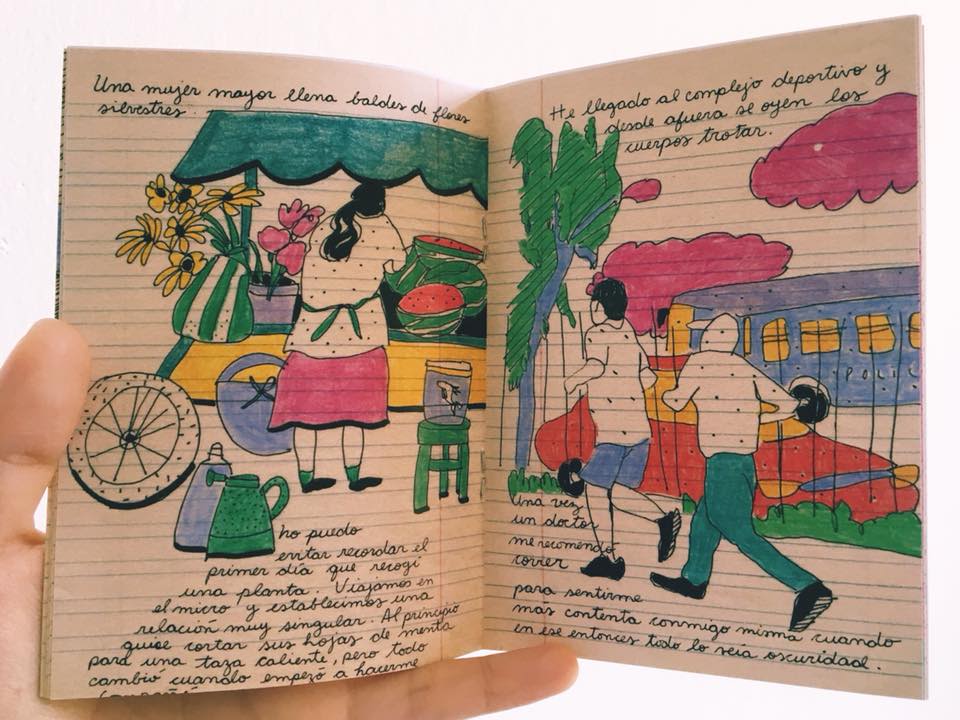 Una mujer mayor llena baldes de flores
silvestres.
No puedo
evitar recordar el
primer día que recogí
una planta. Viajamos en
el micro y establecimos una
relación muy singular. Al principio
quise cortar sus hojas de menta
para una taza caliente, pero todo
cambió cuando empezó a hacerme
He llegado al complejo deportivo y
desde afuera se oyen los
cuerpos trotar.
POLIC
Una vez
un doctor
me recomendó
correr
para sentirme
mas contenta conmigo misma cuando
en ese entonces todo lo veía oscuridad.